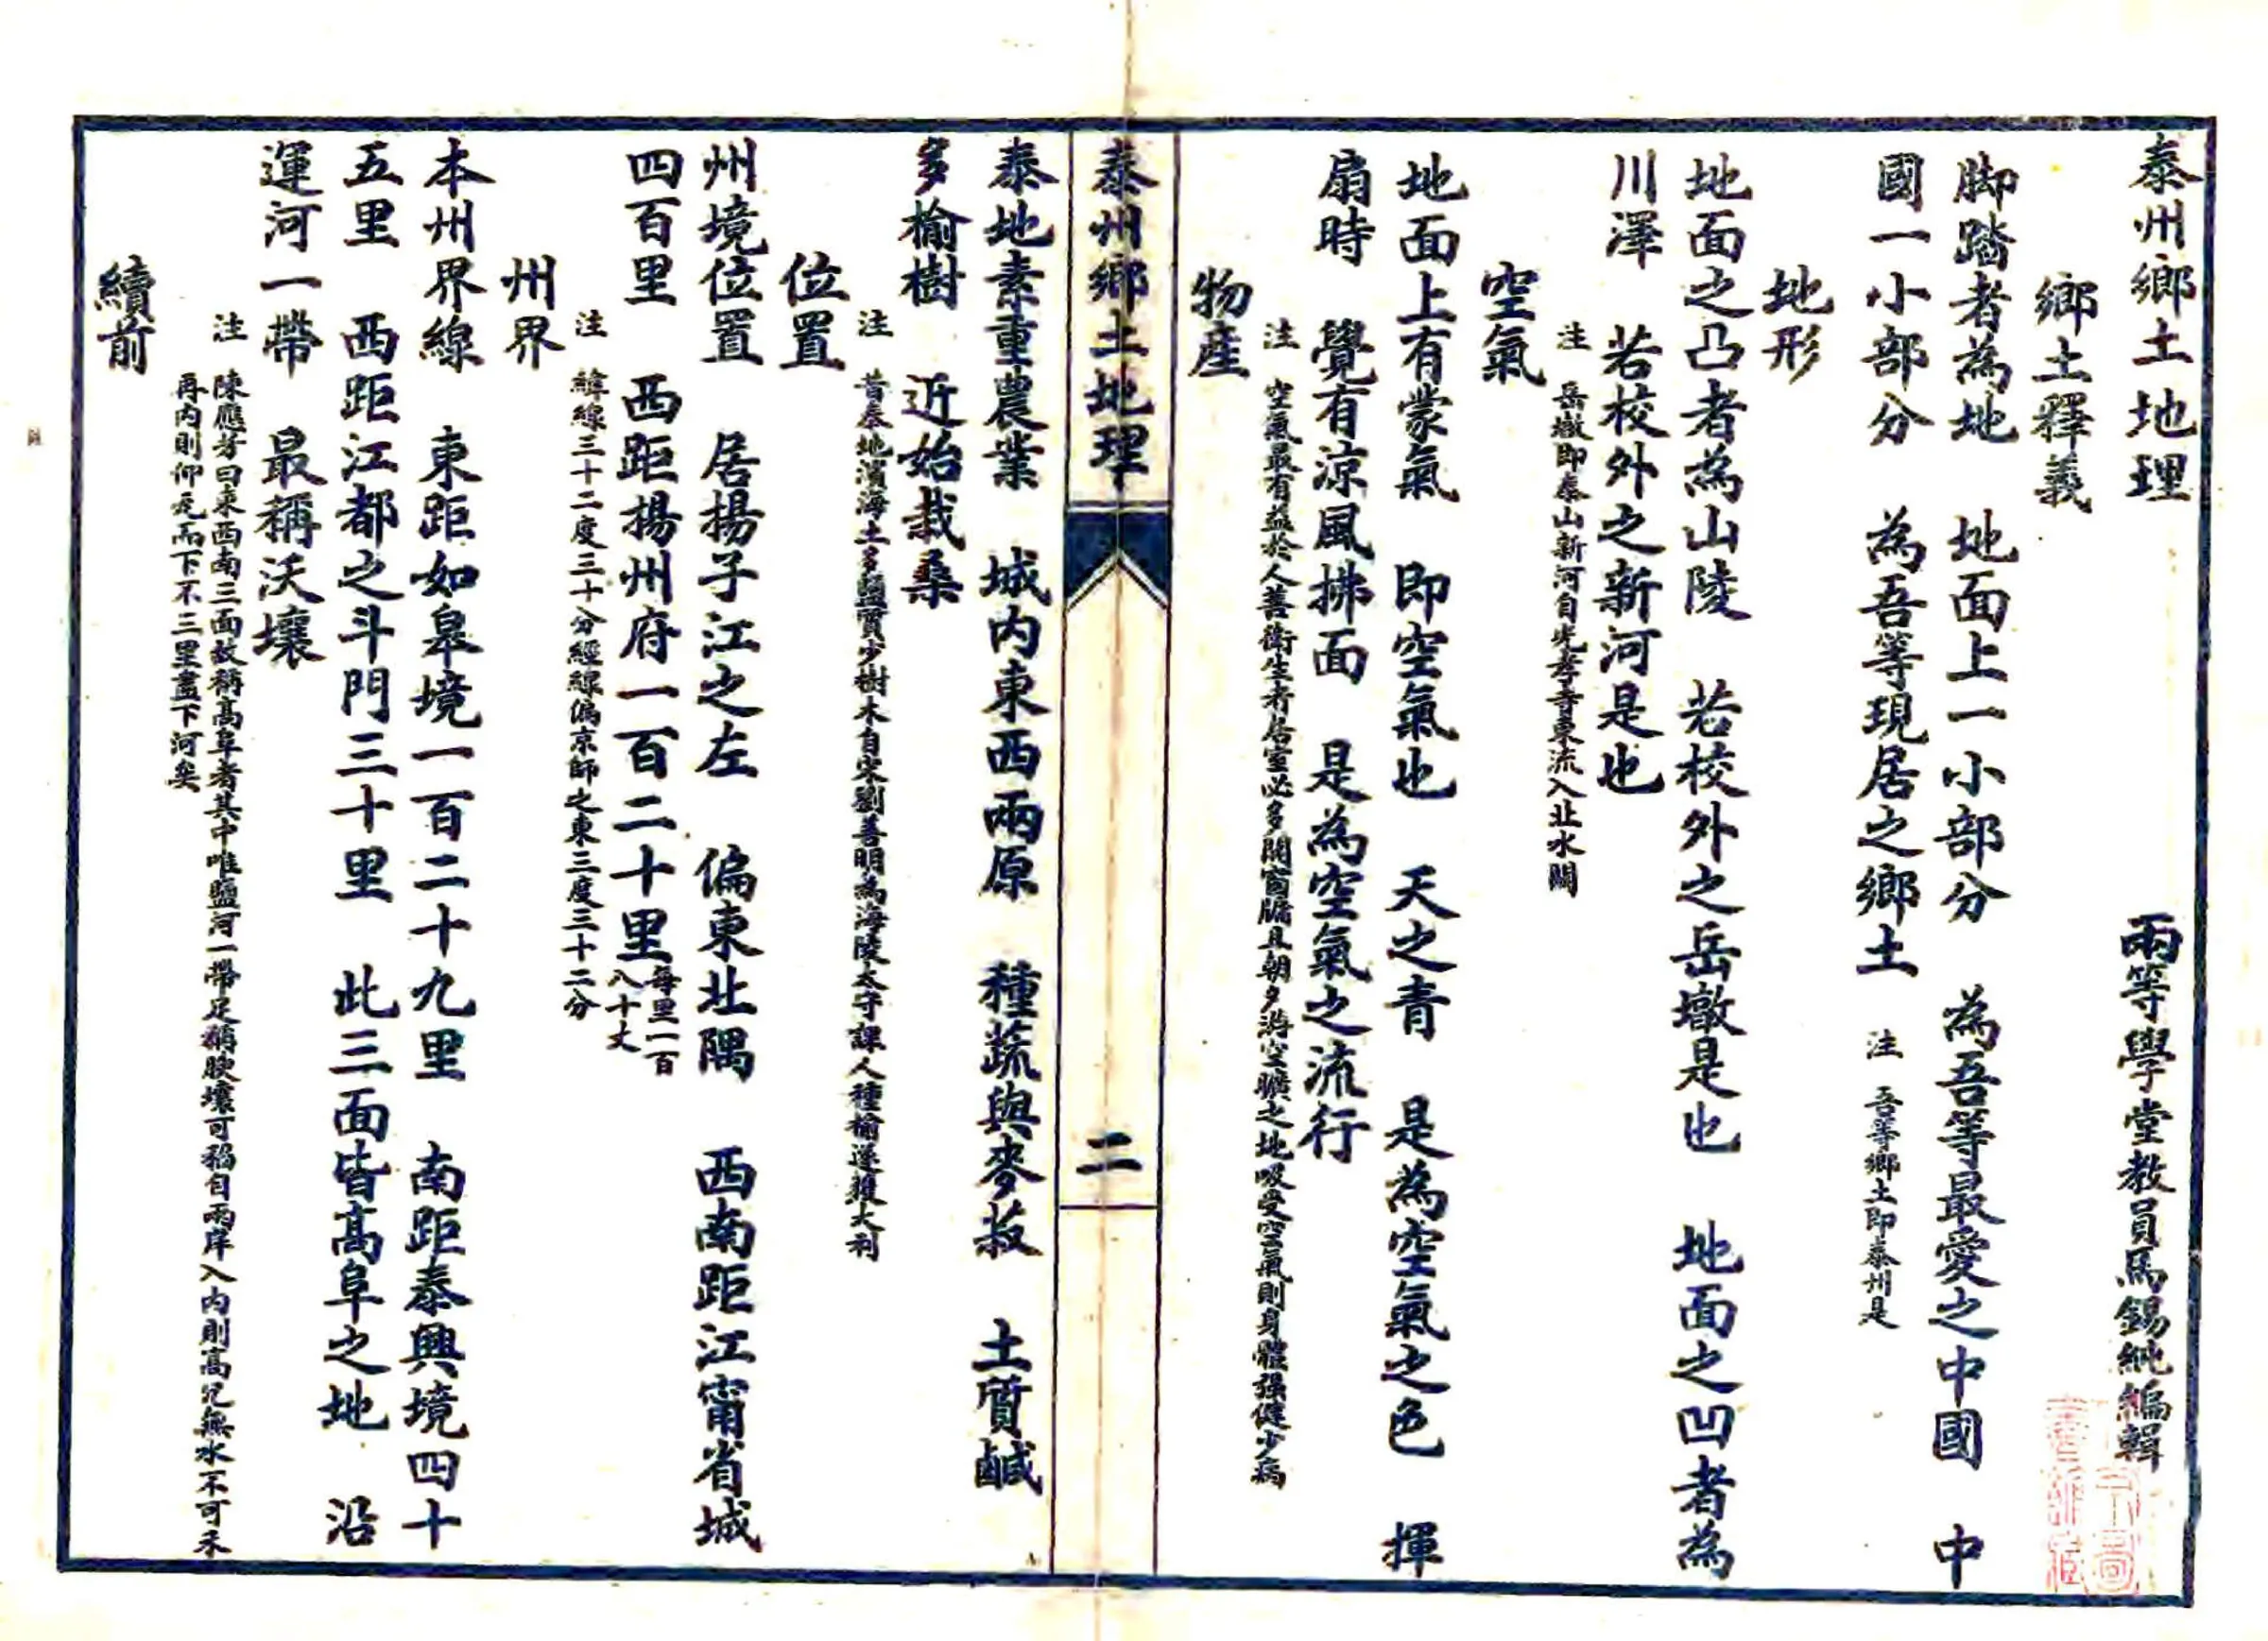 泰州鄉土地理　兩等學堂教員馬錫純編輯
鄉土釋義
脚踏者為地　地面上一小部分　為吾等最愛之中國　中
國一小部分　為吾等現居之鄉土　注　吾等鄉土即泰州是
地形
地面之凸者為山陵　若校外之岳墩是也　地面之凹者為
川澤　若校外之新河是也
注　岳墩即泰山新河自光孝寺東流入北水關
空氣
地面上有蒙氣　即空氣也　天之青　是為空氣之色　揮
扇時　覺有涼風拂面　是為空氣之流行
注　空氣最有益於人善衛生者居室必多開窗牖且朝夕游空曠之地吸受空氣則身體强健少病
物産
泰州鄉土地理
二
泰地素重農業　城内東西兩原　種蔬與麥菽　土質鹹
多榆樹　近始栽桑
注　昔泰地濱海土多鹽質少樹木自宋劉善明為海陵太守課人種榆遂獲大利
位置
州境位置　居揚子江之左　偏東北隅　西南距江甯省城
四百里　西距揚州府一百二十里每里一百八十丈
注　緯線三十二度三十分經線偏京師之東三度三十二分
州界
本州界線　東距如皋境一百二十九里　南距泰興境四十
五里　西距江都之斗門三十里　此三面皆高阜之地　沿
運河一帶　最稱沃壤
注　陳應芳曰東西南三面故稱高阜者其中唯鹽河一帶足稱腴壤可稻自兩岸入内則高兄無水不可禾
再内則仰元而下不三里盡下河矣
續前